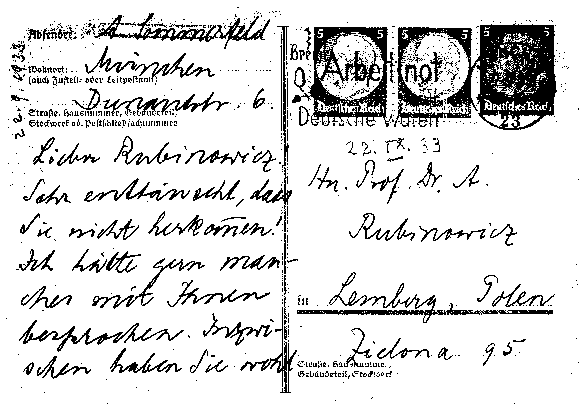 Absender: A Sommerfeld
Wohnort: München
(auch Zustell- oder Leitpostamt)
Dunantstr. 6.
Straße, Hausnummer, Gebäudeteil,
Stockwerk od. Postschließfachnummer
Lieber Rubinowicz!
Sehr enttäuscht, dass
Sie nicht herkom̄en!
Ich hätte gern man-
ches mit Ihnen
besprochen. Inzwi-
schen haben Sie wohl
5 5 5
Arbeitsnot
Deutsches Reich
Deutsche Waren
23
22. IX. 33
Hn. Prof. Dr. A.
Rubinowicz
in Lemberg, Polen
Zielona 95.
Straße, Hausnummer,
Gebäudeteil, Stockwerk